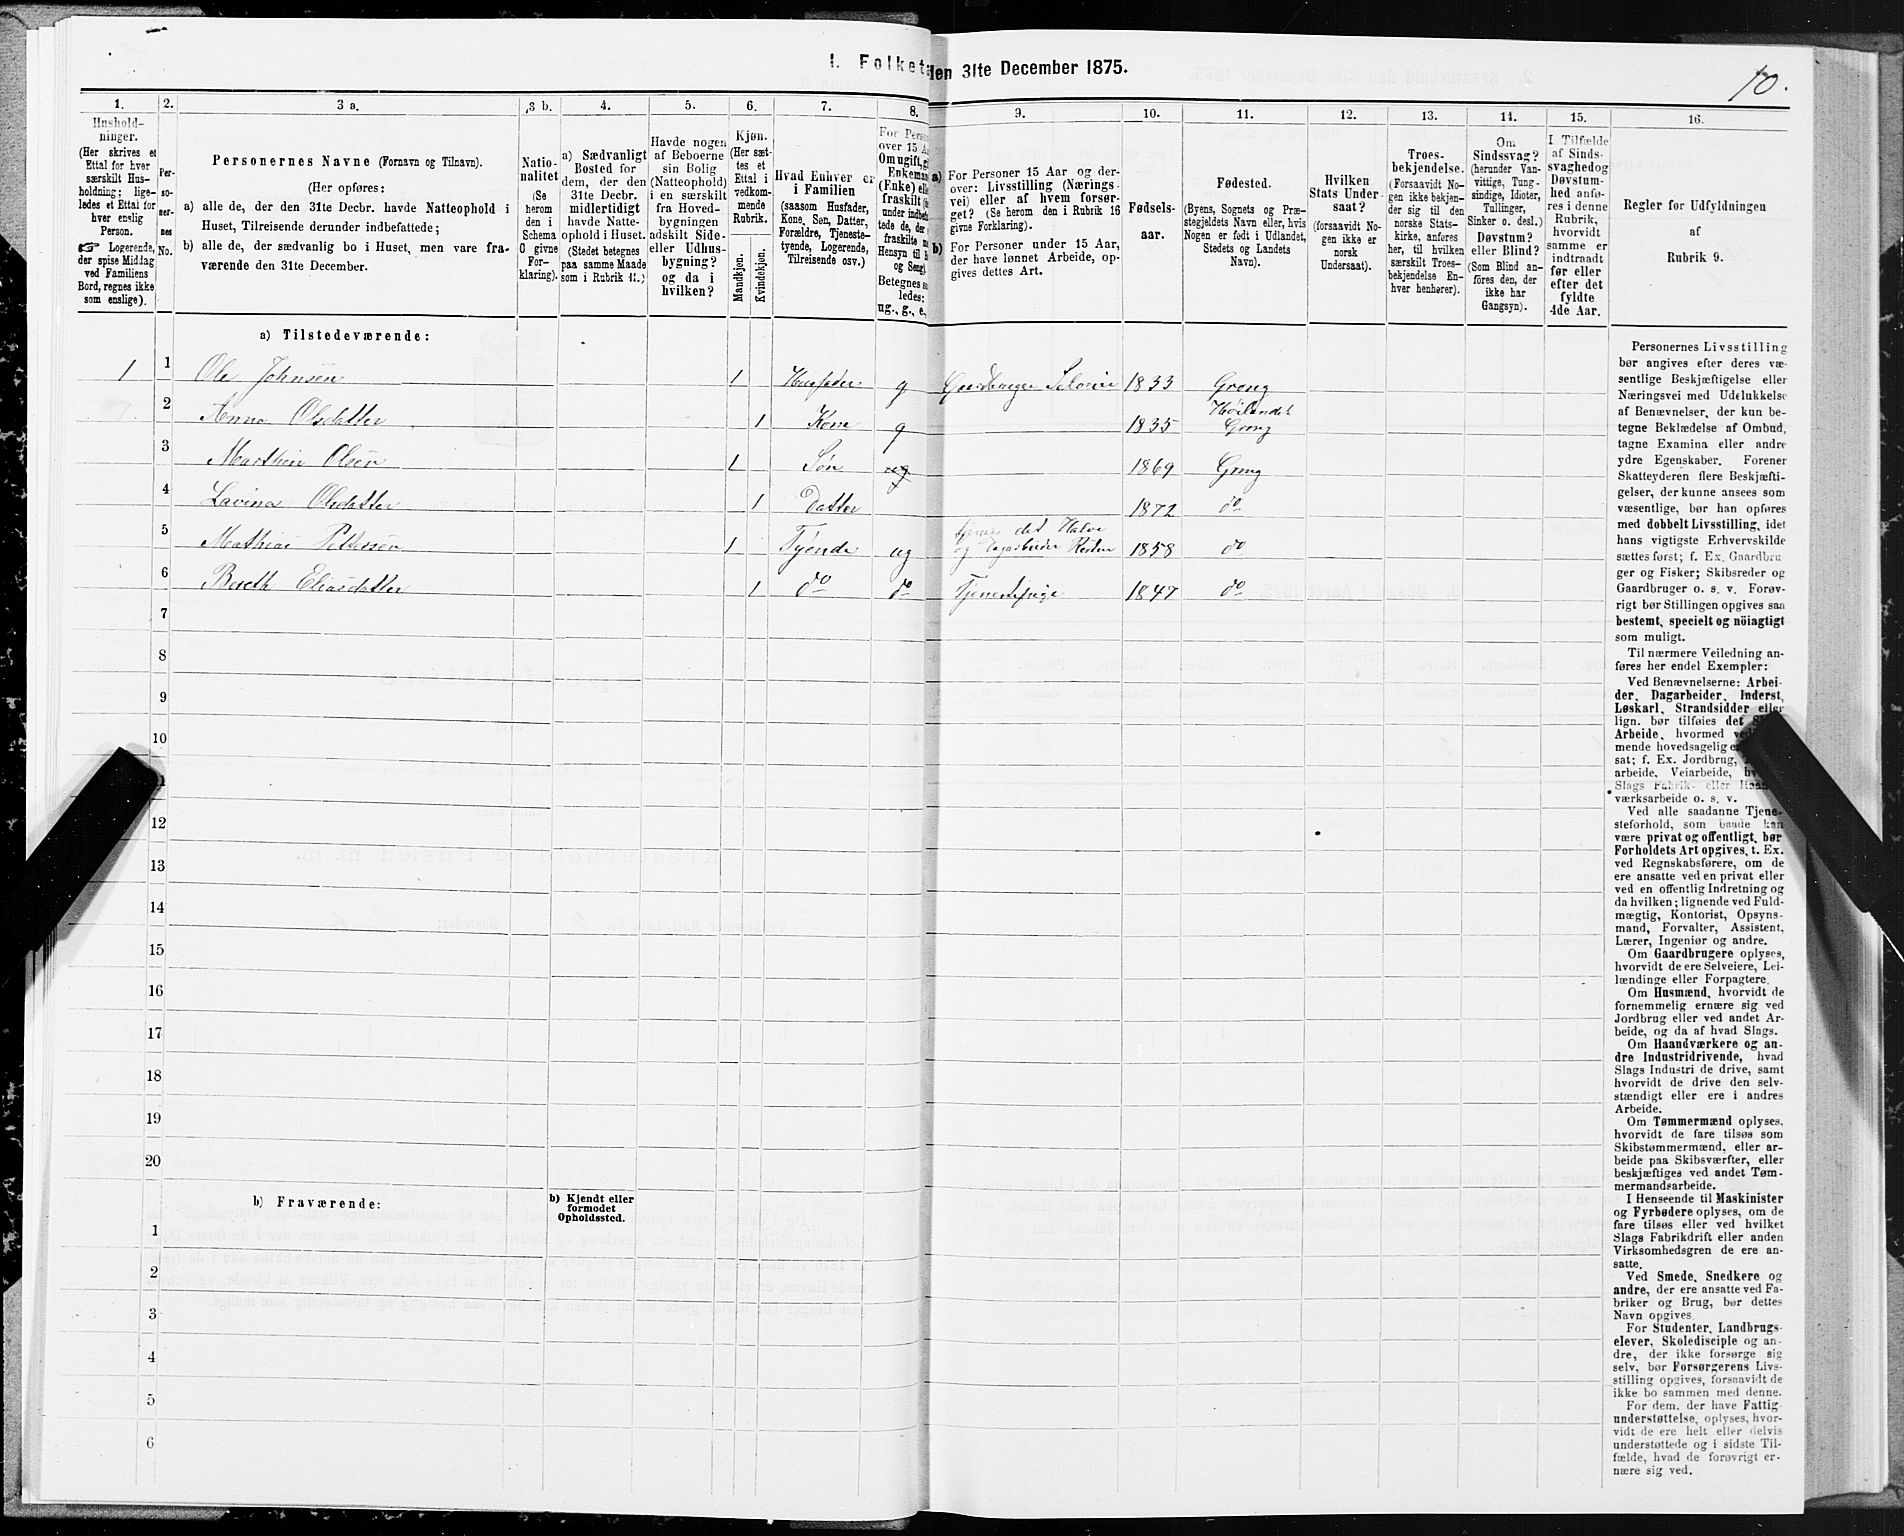 I. Folketa
den 31te December 1875.
10.
1.
2.
3 a.
3 b.
4.
5.
6.
7.
8.
9.
10.
11.
12.
13.
14.
15.
16.
Hushold-
ninger.
(Her skrives et
Ettal for hver
særskilt Hus-
holdning; lige-
ledes et Ettal for
hver enslig
Person.
☞ Logerende,
der spise Middag
ved Familiens
Bord, regnes ikke
som enslige).
Per-
so-
ner-
nes
No.
Personernes Navne (Fornavn og Tilnavn).
(Her opføres:
a) alle de, der den 31te Decbr. havde Natteophold i
Huset, Tilreisende derunder indbefattede;
b) alle de, der sædvanlig bo i Huset, men vare fra-
værende den 31te December.
Natio-
nalitet
(Se
herom
den i
Schema
C givne
For-
klaring).
a) Sædvanligt
Bosted for
dem, der den
31te Decbr.
midlertidigt
havde Natte-
ophold i Huset.
(Stedet betegnes
paa samme Maade
som i Rubrik 11.)
Havde nogen
af Beboerne
sin Bolig
(Natteophold)
i en særskilt
fra Hoved-
bygningen
adskilt Side-
eller Udhus-
bygning?
og da i
hvilken?
Kjøn.
(Her sæt-
tes et
Ettal i
vedkom-
mende
Rubrik.
Mandkjøn.
Kvindekjøn.
Hvad Enhver er
i Familien
(saasom Husfader,
Kone, Søn, Datter,
Forældre, Tjeneste-
tyende, Logerende,
Tilreisende osv.)
For Perso
over 15 A
Om ugift, g
Enkeman
(Enke) elle
fraskilt (h
under indbefa
tede de, der
fraskilte
Hensyn til B
og Seng)
Betegnes s
ledes:
ug., g., e.,
a)
For Personer 15 Aar og der-
over: Livsstilling (Nærings-
vei) eller af hvem forsør-
get? (Se herom den i Rubrik 16
givne Forklaring).
b)
For Personer under 15 Aar,
der have lønnet Arbeide, op-
gives dettes Art.
Fødsels-
aar.
Fødested.
(Byens, Sognets og Præ-
stegjeldets Navn eller, hvis
Nogen er født i Udlandet,
Stedets og Landets
Navn).
Hvilken
Stats Under-
saat?
(forsaavidt No-
gen ikke er
norsk
Undersaat).
Troes-
bekjendelse.
(Forsaavidt No-
gen ikke bekjen-
der sig til den
norske Stats-
kirke, anføres
her, til hvilken
særskilt Troes-
bekjendelse En-
hver henhører).
Om
Sindssvag?
(herunder Van-
vittige, Tung-
sindige, Idioter,
Tullinger,
Sinker o. desl.)
Døvstum?
eller Blind?
(Som Blind an-
føres den, der
ikke har
Gangsyn).
I Tilfælde
af Sinds-
svaghed og
Døvstum-
hed anfø-
res i denne
Rubrik,
hvorvidt
samme er
indtraadt
før eller
efter det
fyldte
4de Aar.
Regler for Udfyldningen
af
Rubrik 9.
a) Tilstedeværende:
1 1 Ole Johnsen 1 Husfader g Gaardbruger Selveier 1833 Grong
2 Anna Olsdatter 1 Kone g 1835 Høilandet Grong
3 Marthin Olsen 1 Søn ug 1869 Grong
4 Lavina Olsdatter 1 Datter 1872 do
5 Mathias Pettersen 1 Tyende ug tjener det Halve og Dagarbeider Resten 1858 do
6 Bereth Eliasdatter 1 do do Tjenestepige 1847 do
7
8
9
10
12
13
14
15
16
17
18
19
20
b) Fraværende:
b) Kjendt eller
formodet
Opholdssted.
1
2
3
4
5
6
Personernes Livsstilling
bør angives efter deres væ-
sentlige Beskjæftigelse eller
Næringsvei med Udelukkelse
af Benævnelser, der kun be-
tegne Beklædelse af Ombud,
tagne Examina eller andre
ydre Egenskaber. Forener
Skatteyderen flere Beskjæfti-
gelser, der kunne ansees som
væsentlige, bør han opføres
med dobbelt Livsstilling, idet
hans vigtigste Erhvervskilde
sættes først; f. Ex. Gaardbru-
ger og Fisker; Skibsreder og
Gaardbruger o. s. v. Forøv-
rigt bør Stillingen opgives saa
bestemt, specielt og nöiagtigt
som muligt.
Til nærmere Veiledning an-
føres her endel Exempler:
Ved Benævnelserne: Arbei-
der, Dagarbeider, Inderst,
Løskarl, Strandsidder eller
lign. bør tilføies det S
Arbeide, hvormed ve
mende hovedsagelig e
sat; f. Ex. Jordbrug,
arbeide, Veiarbeide, h
Slags Fabrik- eller Haan
værksarbeide o. s. v.
Ved alle saadanne Tjene-
steforhold, som baade kan
være privat og offentligt, bør
Forholdets Art opgives, t. Ex.
ved Regnskabsførere, om de
ere ansatte ved en privat eller
ved en offentlig Indretning og
da hvilken; lignende ved Fuld-
mægtig, Kontorist, Opsyns-
mand, Forvalter, Assistent,
Lærer, Ingeniør og andre.
Om Gaardbrugere oplyses,
hvorvidt de ere Selveiere, Lei-
lændinge eller Forpagtere.
Om Husmænd, hvorvidt de
fornemmelig ernære sig ved
Jordbrug eller ved andet Ar-
beide, og da af hvad Slags.
Om Haandværkere og an-
dre Industridrivende, hvad
Slags Industri de drive, samt
hvorvidt de drive den selv-
stændigt eller ere i andres
Arbeide.
Om Tømmermænd oplyses,
hvorvidt de fare tilsøs som
Skibstømmermænd, eller ar-
beide paa Skibsværfter, eller
beskjæftiges ved andet Tøm-
mermandsarbeide.
I Henseende til Maskinister
og Fyrbødere oplyses, om de
fare tilsøs eller ved hvilket
Slags Fabrikdrift eller anden
Virksomhedsgren de ere an-
satte.
Ved Smede, Snedkere og
andre, der ere ansatte ved Fa-
briker og Brug, bør dettes
Navn opgives.
For Studenter, Landbrugs-
elever, Skoledisciple og an-
dre, der ikke forsørge sig
selv, bør Forsørgerens Livs-
stilling opgives, forsaavidt de
ikke bo sammen med denne.
For dem, der have Fattig-
understøttelse, oplyses, hvor-
vidt de ere helt eller delvis
understøttede og i sidste Til-
fælde, hvad de forøvrigt er-
nære sig ved.